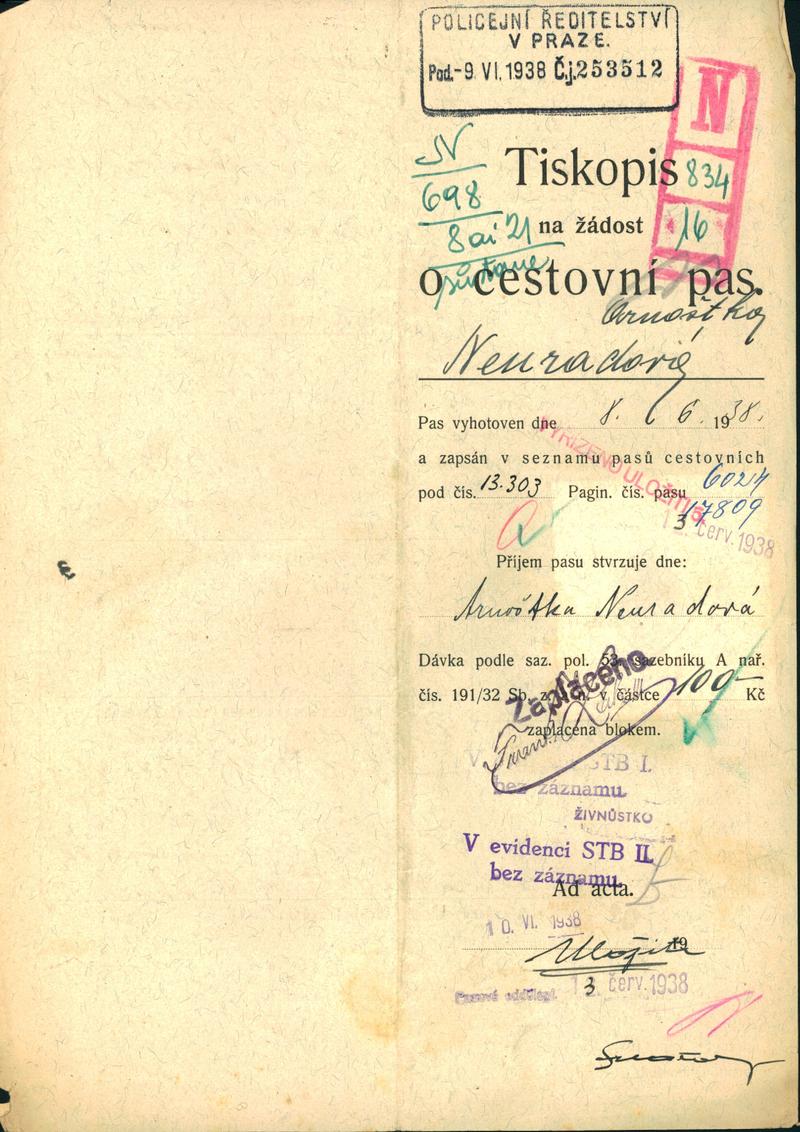 POLICEJNÍ ŘEDITELSTVÍ
V PRAZE.
Pod. -9 VI. 1938 Č.j. 253512
N
834
16
N
698
Tiskopis
na žádost
o cestovní pas.
Arnoštka
Neuradová
Pas vyhotoven dne 8. 6. 1938.
VYŘIZENO ULOŽITI
a zapsán v seznamu pasů cestovních
pod čís. 13.303 Pagin. čís. pasu 6024
17809
13 červ. 1938
Příjem pasu stvrzuje dne:
Arnoštka Neuradová
Dávka podle saz. pol. 53. sazebníku A nař.
čís. 191/32 Sb. z. a n. v částce 100- Kč
Zaplaceno
zaplacena blokem.
V STB I.
bez záznamu.
ŽIVNŮSTKO
V evidenci STB II.
bez záznamu.
Ad acta.
10. VI. 1938
19
Uložit
Pasové oddělení 13 červ. 1938